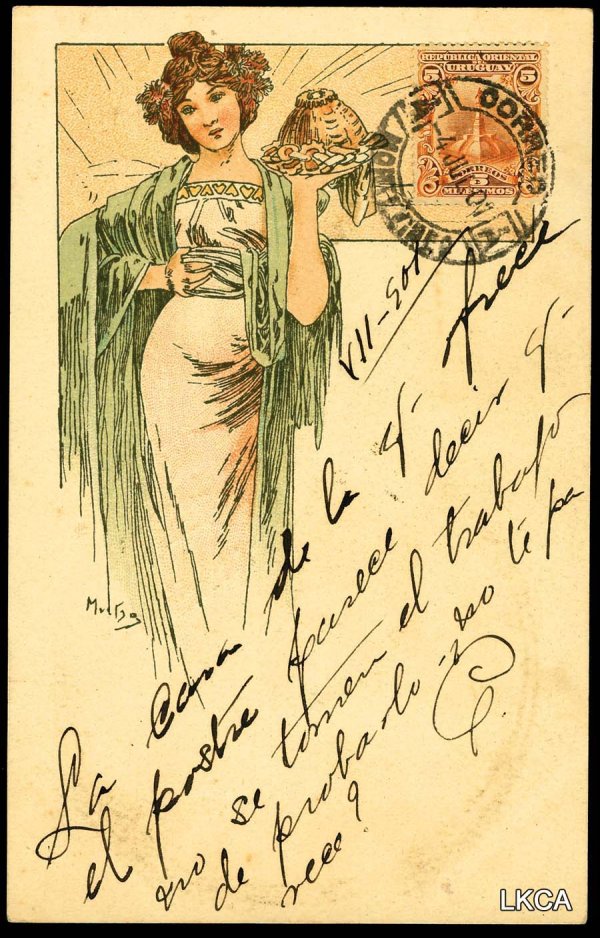 REPÚBLICA ORIENTAL
DEL URUGUAY
5 5
CORREOS
5
MILESIMOS
CORREOS
MONTEVIDEO
VII-901
Mucha
La cara de la q. frece
el postre parece decir q.
no se tomen el trabajo
de probarlo ¿no te pa
rece?
C.
LKCA